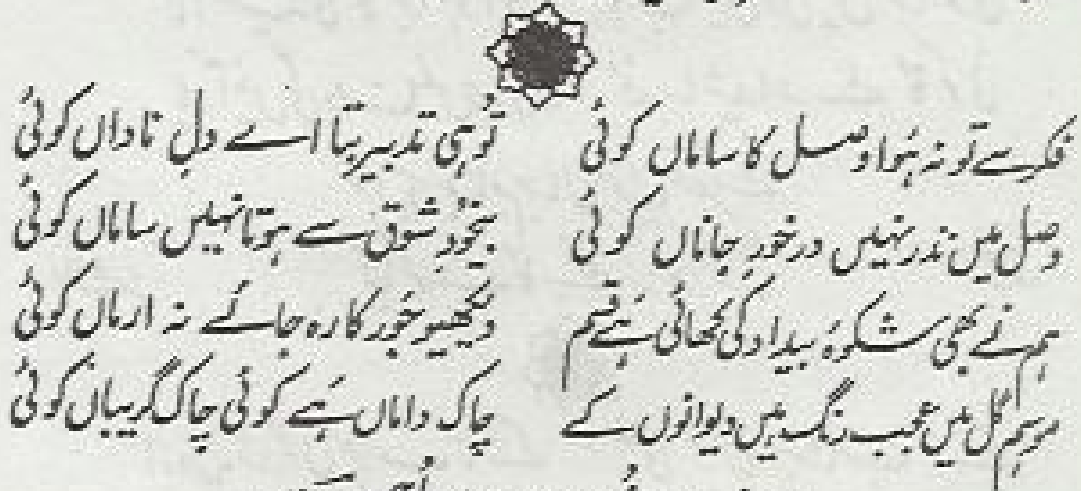 فکر سے تو نہ ہُوا وصل کا ساماں کوئی تُو ہی تدبیر بتا اے دلِ ناداں کوئی
وصل میں نذر نہیں درخورِ جاناں کوئی بیخودِ شوق سے ہوتا نہیں ساماں کوئی
ہم نے بھی شکوۂ بیداد کی کھائی ہَے قسم دیکھیو جَور کا رہ جائے نہ ارماں کوئی
موسمِ گل میں عجب رنگ ہیں دیوانوں کے چاک داماں ہَے کوئی چاک گریباں کوئی